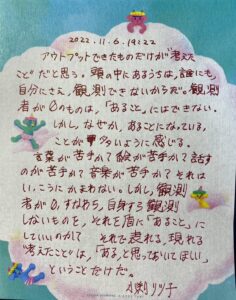 2022.11.6.19:22
アウトプットできたものだけが“考えた
こと”だと思う。頭の中にあるうちは、誰にも、
自分にさえ、観測できないからだ。観測
者が0のものは、「あること」にはできない。
しかし、なぜか、あることになっている、
ことが多いように感じる。
言葉が苦手で絵が苦手で話す
のが苦手で音楽が苦手でそれは
いい、こうにかまわない。しかし、観測
者が0、すなわち、自身すら観測
しないものを、それを盾に「あること」に
していいのか？それを表れる、現れる
“考えたこと”は、「ある、と思っておいてほしい」
ということだけだ。